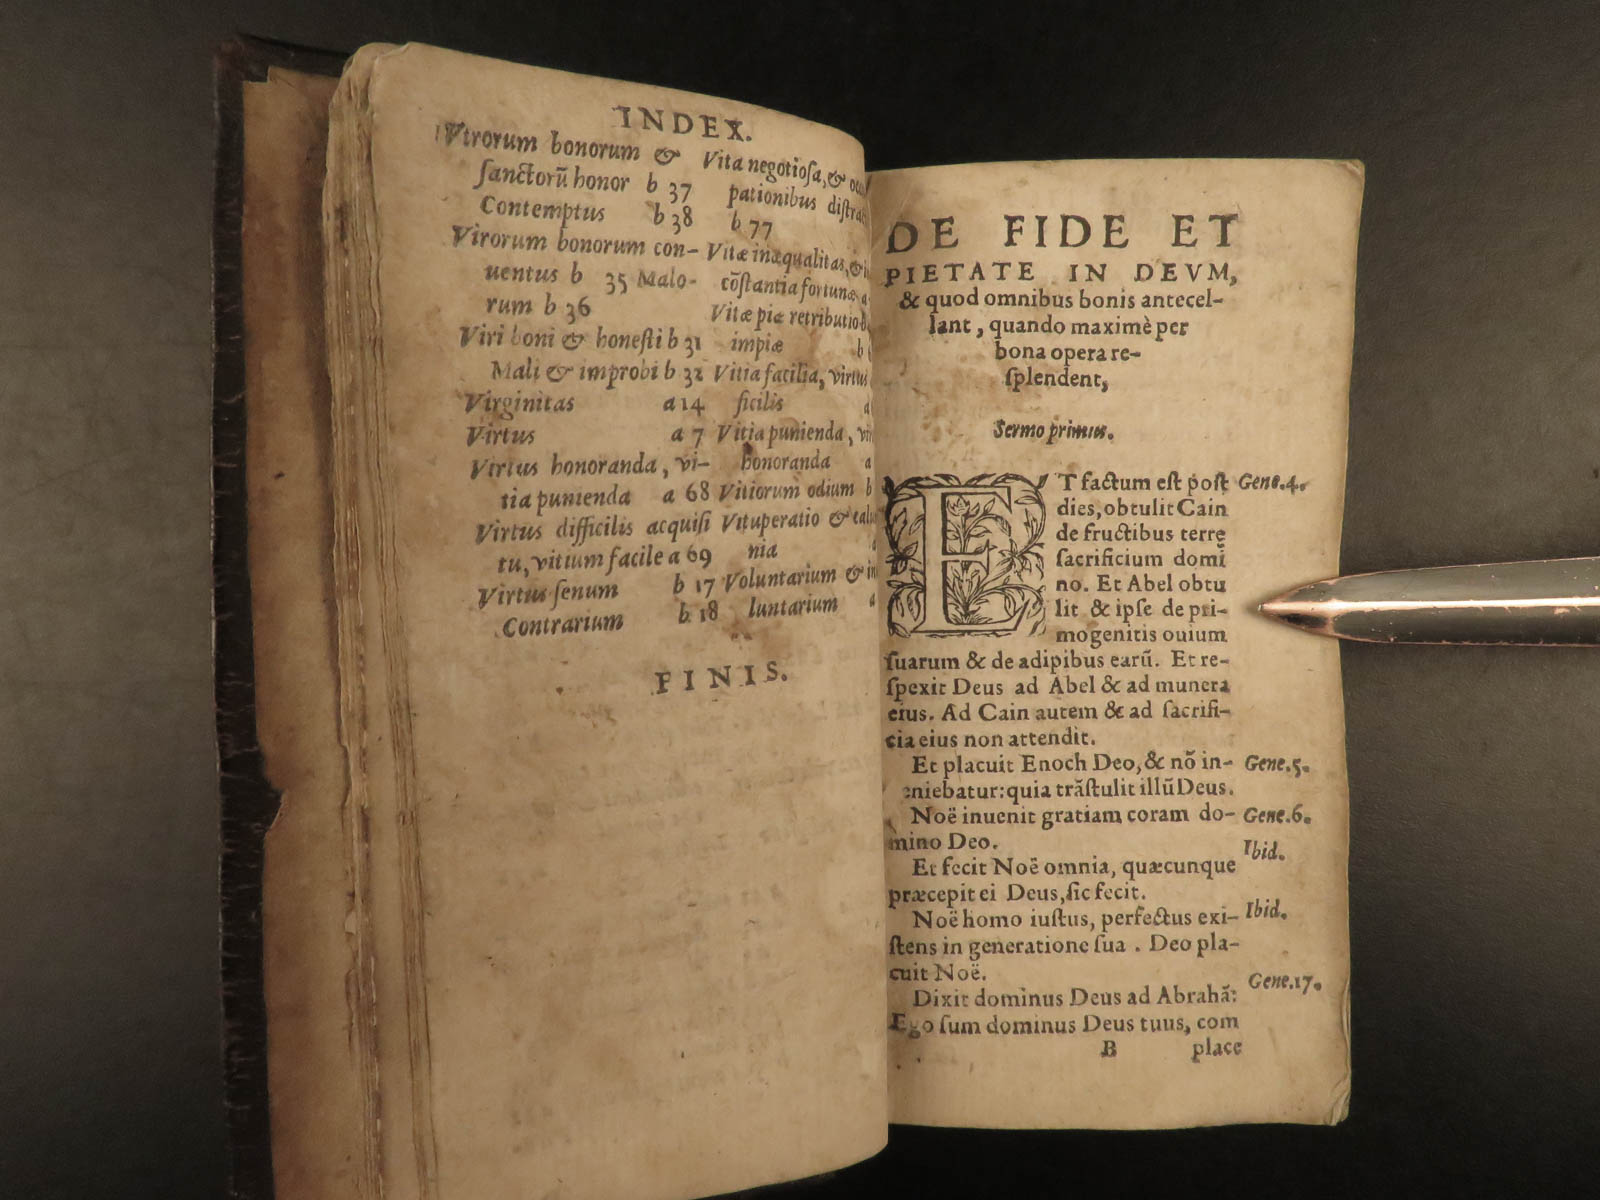 INDEX.
Virorum bonorum &
sanctorū honor b 37
Contemptus b 38
Virorum bonorum con-
uentus b 35 Malo-
rum b 36
Viri boni & honesti b 31
Mali & improbi b 32
Virginitas a 14
Virtus a 7
Virtus honoranda, vi-
tia punienda a 68
Virtus difficilis acquisi
tu, vitium facile a 69
Virtus senum b 17
Contrarium b 18
Vita negotiosa, &
pationibus
b 77
Vitæ inæqualitas, &
cōstantia fortunæ a
Vitæ piæ retributio
impiæ b
Vitia facilia, virtus
ficilis a
Vitia punienda,
honoranda a
Vitiorum odium b
Vituperatio &
nia a
Voluntarium &
luntarium a
FINIS.
DE FIDE ET
PIETATE IN DEVM,
& quod omnibus bonis antecel-
lant, quando maximè per
bona opera re-
splendent,
Sermo primus.
ET factum est post
dies, obtulit Cain
de fructibus terrę
sacrificium domi
no. Et Abel obtu
lit & ipse de pri-
mogenitis ouium
suarum & de adipibus earū. Et re-
spexit Deus ad Abel & ad munera
eius. Ad Cain autem & ad sacrifi-
cia eius non attendit.
Et placuit Enoch Deo, & nō in-
eniebatur: quia trāstulit illū Deus.
Noë inuenit gratiam coram do-
mino Deo.
Et fecit Noë omnia, quæcunque
præcepit ei Deus, sic fecit.
Noë homo iustus, perfectus exi-
stens in generatione sua. Deo pla-
cuit Noë.
Dixit dominus Deus ad Abrahā:
Ego sum dominus Deus tuus, com
B place
Gene.4.
Gene.5.
Gene.6.
Ibid.
Ibid.
Gene.17.